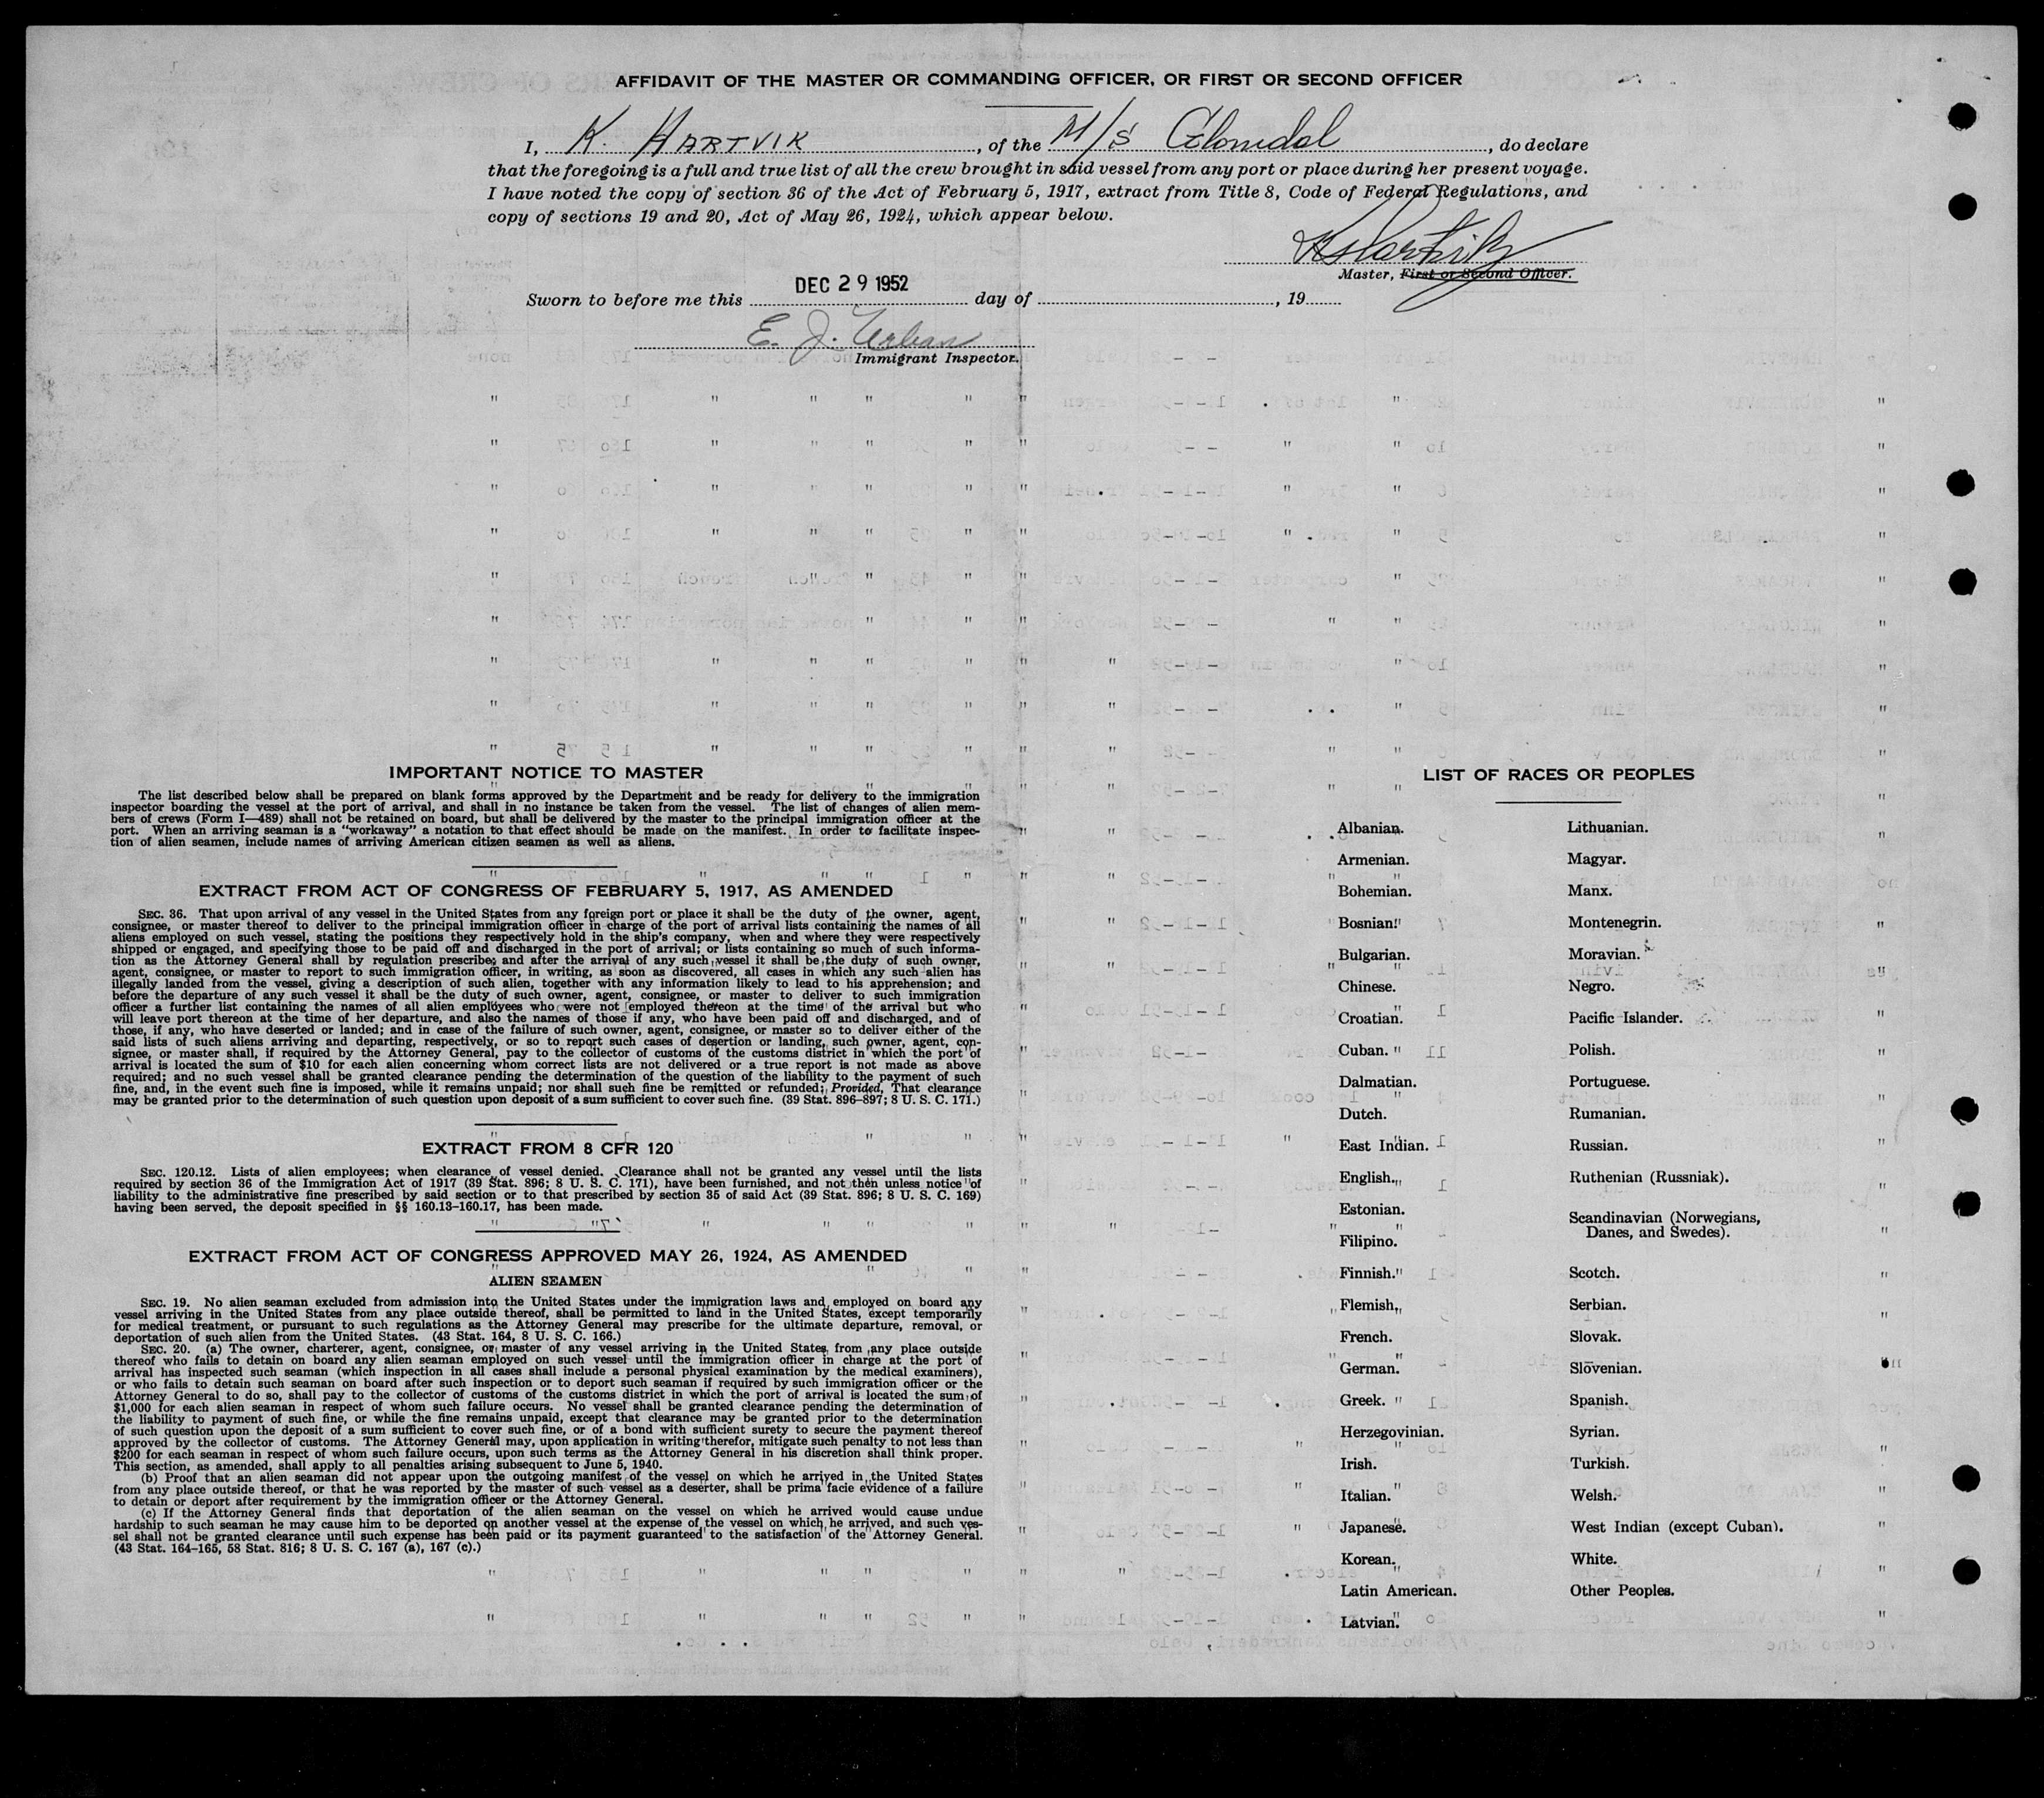 AFFIDAVIT OF THE MASTER OR COMMANDING OFFICER, OR FIRST OR SECOND OFFICER
I, K. HARTVIK, of the M/S Glomdal, do declare
that the foregoing is a full and true list of all the crew brought in said vessel from any port or place during her present voyage.
I have noted the copy of section 36 of the Act of February 5, 1917, extract from Title 8, Code of Federal Regulations, and
copy of sections 19 and 20, Act of May 26, 1924, which appear below.
K Hartvik
Master, First or Second Officer.
Sworn to before me this DEC 29 1952 day of , 19
E. J. Urban
Immigrant Inspector.
IMPORTANT NOTICE TO MASTER
The list described below shall be prepared on blank forms approved by the Department and be ready for delivery to the immigration
inspector boarding the vessel at the port of arrival, and shall in no instance be taken from the vessel. The list of changes of alien mem-
bers of crews (Form I—489) shall not be retained on board, but shall be delivered by the master to the principal immigration officer at the
port. When an arriving seaman is a "workaway" a notation to that effect should be made on the manifest. In order to facilitate inspec-
tion of alien seamen, include names of arriving American citizen seamen as well as aliens.
EXTRACT FROM ACT OF CONGRESS OF FEBRUARY 5, 1917, AS AMENDED
SEC. 36. That upon arrival of any vessel in the United States from any foreign port or place it shall be the duty of the owner, agent,
consignee, or master thereof to deliver to the principal immigration officer in charge of the port of arrival lists containing the names of all
aliens employed on such vessel, stating the positions they respectively hold in the ship's company, when and where they were respectively
shipped or engaged, and specifying those to be paid off and discharged in the port of arrival; or lists containing so much of such informa-
tion as the Attorney General shall by regulation prescribe; and after the arrival of any such vessel it shall be the duty of such owner,
agent, consignee, or master to report to such immigration officer, in writing, as soon as discovered, all cases in which any such alien has
illegally landed from the vessel, giving a description of such alien, together with any information likely to lead to his apprehension; and
before the departure of any such vessel it shall be the duty of such owner, agent, consignee, or master to deliver to such immigration
officer a further list containing the names of all alien employees who were not employed thereon at the time of the arrival but who
will leave port thereon at the time of her departure, and also the names of those if any, who have been paid off and discharged, and of
those, if any, who have deserted or landed; and in case of the failure of such owner, agent, consignee, or master so to deliver either of the
said lists of such aliens arriving and departing, respectively, or so to report such cases of desertion or landing, such owner, agent, con-
signee, or master shall, if required by the Attorney General, pay to the collector of customs of the customs district in which the port of
arrival is located the sum of $10 for each alien concerning whom correct lists are not delivered or a true report is not made as above
required; and no such vessel shall be granted clearance pending the determination of the question of the liability to the payment of such
fine, and, in the event such fine is imposed, while it remains unpaid; nor shall such fine be remitted or refunded; Provided, That clearance
may be granted prior to the determination of such question upon deposit of a sum sufficient to cover such fine. (39 Stat. 896–897; 8 U. S. C. 171.)
EXTRACT FROM 8 CFR 120
SEC. 120.12. Lists of alien employees; when clearance of vessel denied. Clearance shall not be granted any vessel until the lists
required by section 36 of the Immigration Act of 1917 (39 Stat. 896; 8 U. S. C. 171), have been furnished, and not then unless notice of
liability to the administrative fine prescribed by said section or to that prescribed by section 35 of said Act (39 Stat. 896; 8 U. S. C. 169)
having been served, the deposit specified in §§ 160.13–160.17, has been made.
EXTRACT FROM ACT OF CONGRESS APPROVED MAY 26, 1924, AS AMENDED
ALIEN SEAMEN
SEC. 19. No alien seaman excluded from admission into the United States under the immigration laws and employed on board any
vessel arriving in the United States from any place outside thereof, shall be permitted to land in the United States, except temporarily
for medical treatment, or pursuant to such regulations as the Attorney General may prescribe for the ultimate departure, removal, or
deportation of such alien from the United States. (43 Stat. 164, 8 U. S. C. 166.)
SEC. 20. (a) The owner, charterer, agent, consignee, or master of any vessel arriving in the United States from any place outside
thereof who fails to detain on board any alien seaman employed on such vessel until the immigration officer in charge at the port of
arrival has inspected such seaman (which inspection in all cases shall include a personal physical examination by the medical examiners),
or who fails to detain such seaman on board after such inspection or to deport such seaman if required by such immigration officer or the
Attorney General to do so, shall pay to the collector of customs of the customs district in which the port of arrival is located the sum of
$1,000 for each alien seaman in respect of whom such failure occurs. No vessel shall be granted clearance pending the determination of
the liability to payment of such fine, or while the fine remains unpaid, except that clearance may be granted prior to the determination
of such question upon the deposit of a sum sufficient to cover such fine, or of a bond with sufficient surety to secure the payment thereof
approved by the collector of customs. The Attorney General may, upon application in writing therefor, mitigate such penalty to not less than
$200 for each seaman in respect of whom such failure occurs, upon such terms as the Attorney General in his discretion shall think proper.
This section, as amended, shall apply to all penalties arising subsequent to June 5, 1940.
(b) Proof that an alien seaman did not appear upon the outgoing manifest of the vessel on which he arrived in the United States
from any place outside thereof, or that he was reported by the master of such vessel as a deserter, shall be prima facie evidence of a failure
to detain or deport after requirement by the immigration officer or the Attorney General.
(c) If the Attorney General finds that deportation of the alien seaman on the vessel on which he arrived would cause undue
hardship to such seaman he may cause him to be deported on another vessel at the expense of the vessel on which he arrived, and such ves-
sel shall not be granted clearance until such expense has been paid or its payment guaranteed to the satisfaction of the Attorney General.
(43 Stat. 164–165, 58 Stat. 816; 8 U. S. C. 167 (a), 167 (c).)
LIST OF RACES OR PEOPLES
Albanian.
Armenian.
Bohemian.
Bosnian.
Bulgarian.
Chinese.
Croatian.
Cuban.
Dalmatian.
Dutch.
East Indian.
English.
Estonian.
Filipino.
Finnish.
Flemish.
French.
German.
Greek.
Herzegovinian.
Irish.
Italian.
Japanese.
Korean.
Latin American.
Latvian.
Lithuanian.
Magyar.
Manx.
Montenegrin.
Moravian.
Negro.
Pacific Islander.
Polish.
Portuguese.
Rumanian.
Russian.
Ruthenian (Russniak).
Scandinavian (Norwegians,
Danes, and Swedes).
Scotch.
Serbian.
Slovak.
Slovenian.
Spanish.
Syrian.
Turkish.
Welsh.
West Indian (except Cuban).
White.
Other Peoples.